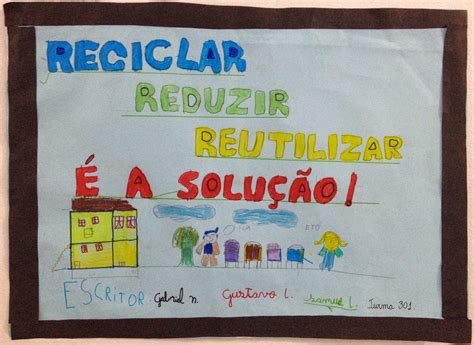 RECICLAR
REDUZIR
REUTILIZAR
É A SOLUÇÃO!
OLA
ESCRITOR: Gabriel n. Gustavo l. Samuel l. Turma 301.